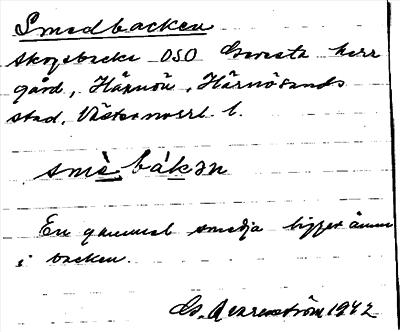 Smedbacken
skogsbacke OSO Geresta herr
gård, Härnön, Härnösands
stad, Västernorrl. l.
smè bákən
En gammal smedja ligger ännu
i backen.
1942